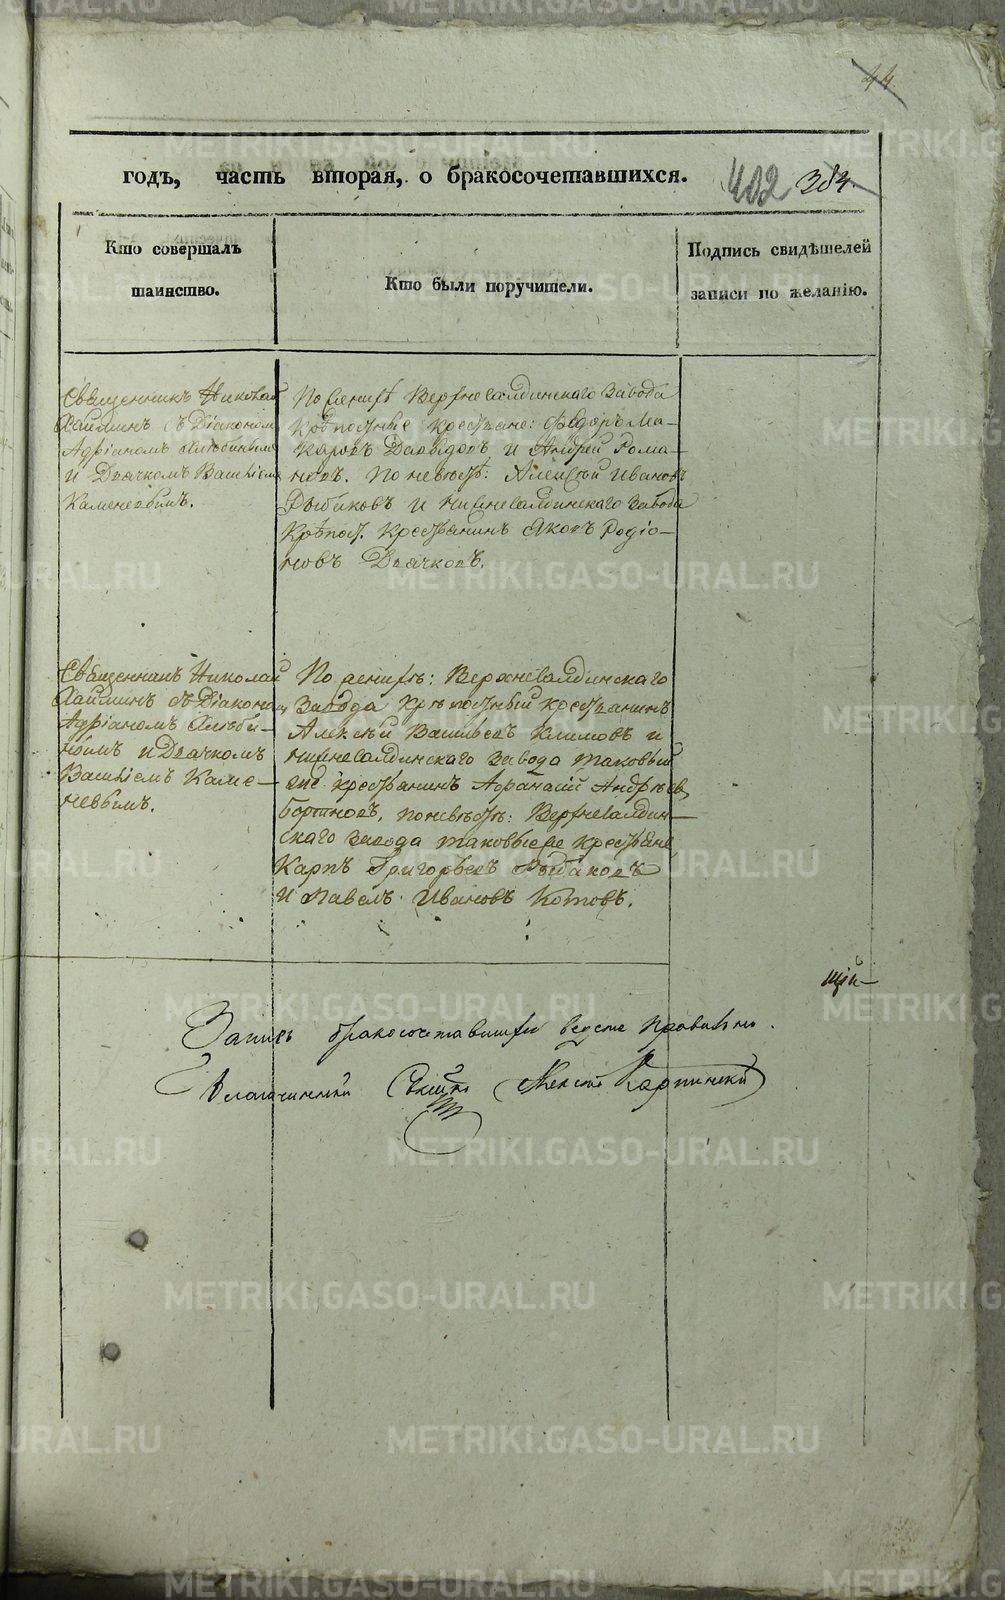 44
годъ, часть вторая, о бракосочетавшихся.
402 383
Кто совершалъ таинство.
Кто были поручители.
Подпись свидѣтелей записи по желанію.
Священникъ Николай
съ Діакономъ
Адріаномъ
и Дьячкомъ Василіемъ
Каменевымъ.
По женихѣ Верхнесалдинскаго Завода
крѣпостные крестьяне: Федоръ Ма-
каровъ Давыдовъ, и Андрей Рома-
новъ. По невѣстѣ: Алексѣй Ивановъ
Рыбаковъ и Нижнесалдинскаго Завода
крѣпост. крестьянинъ Яковъ Родіо-
новъ Дьячковъ.
Священникъ Николай
съ Діакономъ
Адріаномъ
и Дьячкомъ
Василіемъ Каме-
невымъ.
По женихѣ: Верхнесалдинскаго
Завода крѣпостный крестьянинъ
Алексѣй Васильевъ Климовъ и
Нижнесалдинскаго Завода таковый
же крестьянинъ Афанасій Андреевъ
по невѣстѣ: Верхнесалдин-
скаго Завода таковыеже крестьяне
Карпъ Григорьевъ Рыбаковъ
и Павелъ Ивановъ Котовъ.
щій
Запись бракосочетавшихся ведена правильно.
Благочинный Алексій Карпинскій
METRIKI.GASO-URAL.RU